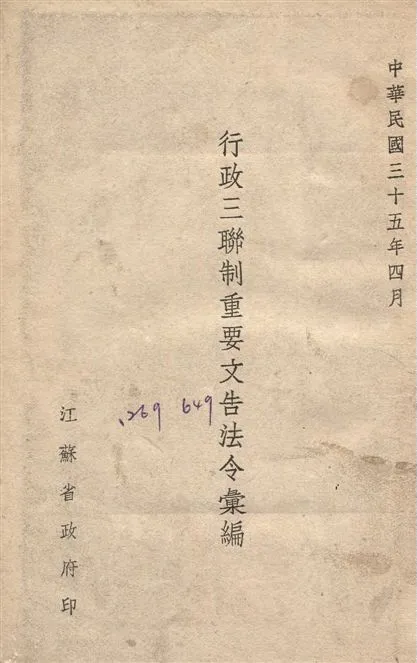 中華民國三十五年四月
行政三聯制重要文告法令彙編
.269 649
江蘇省政府印